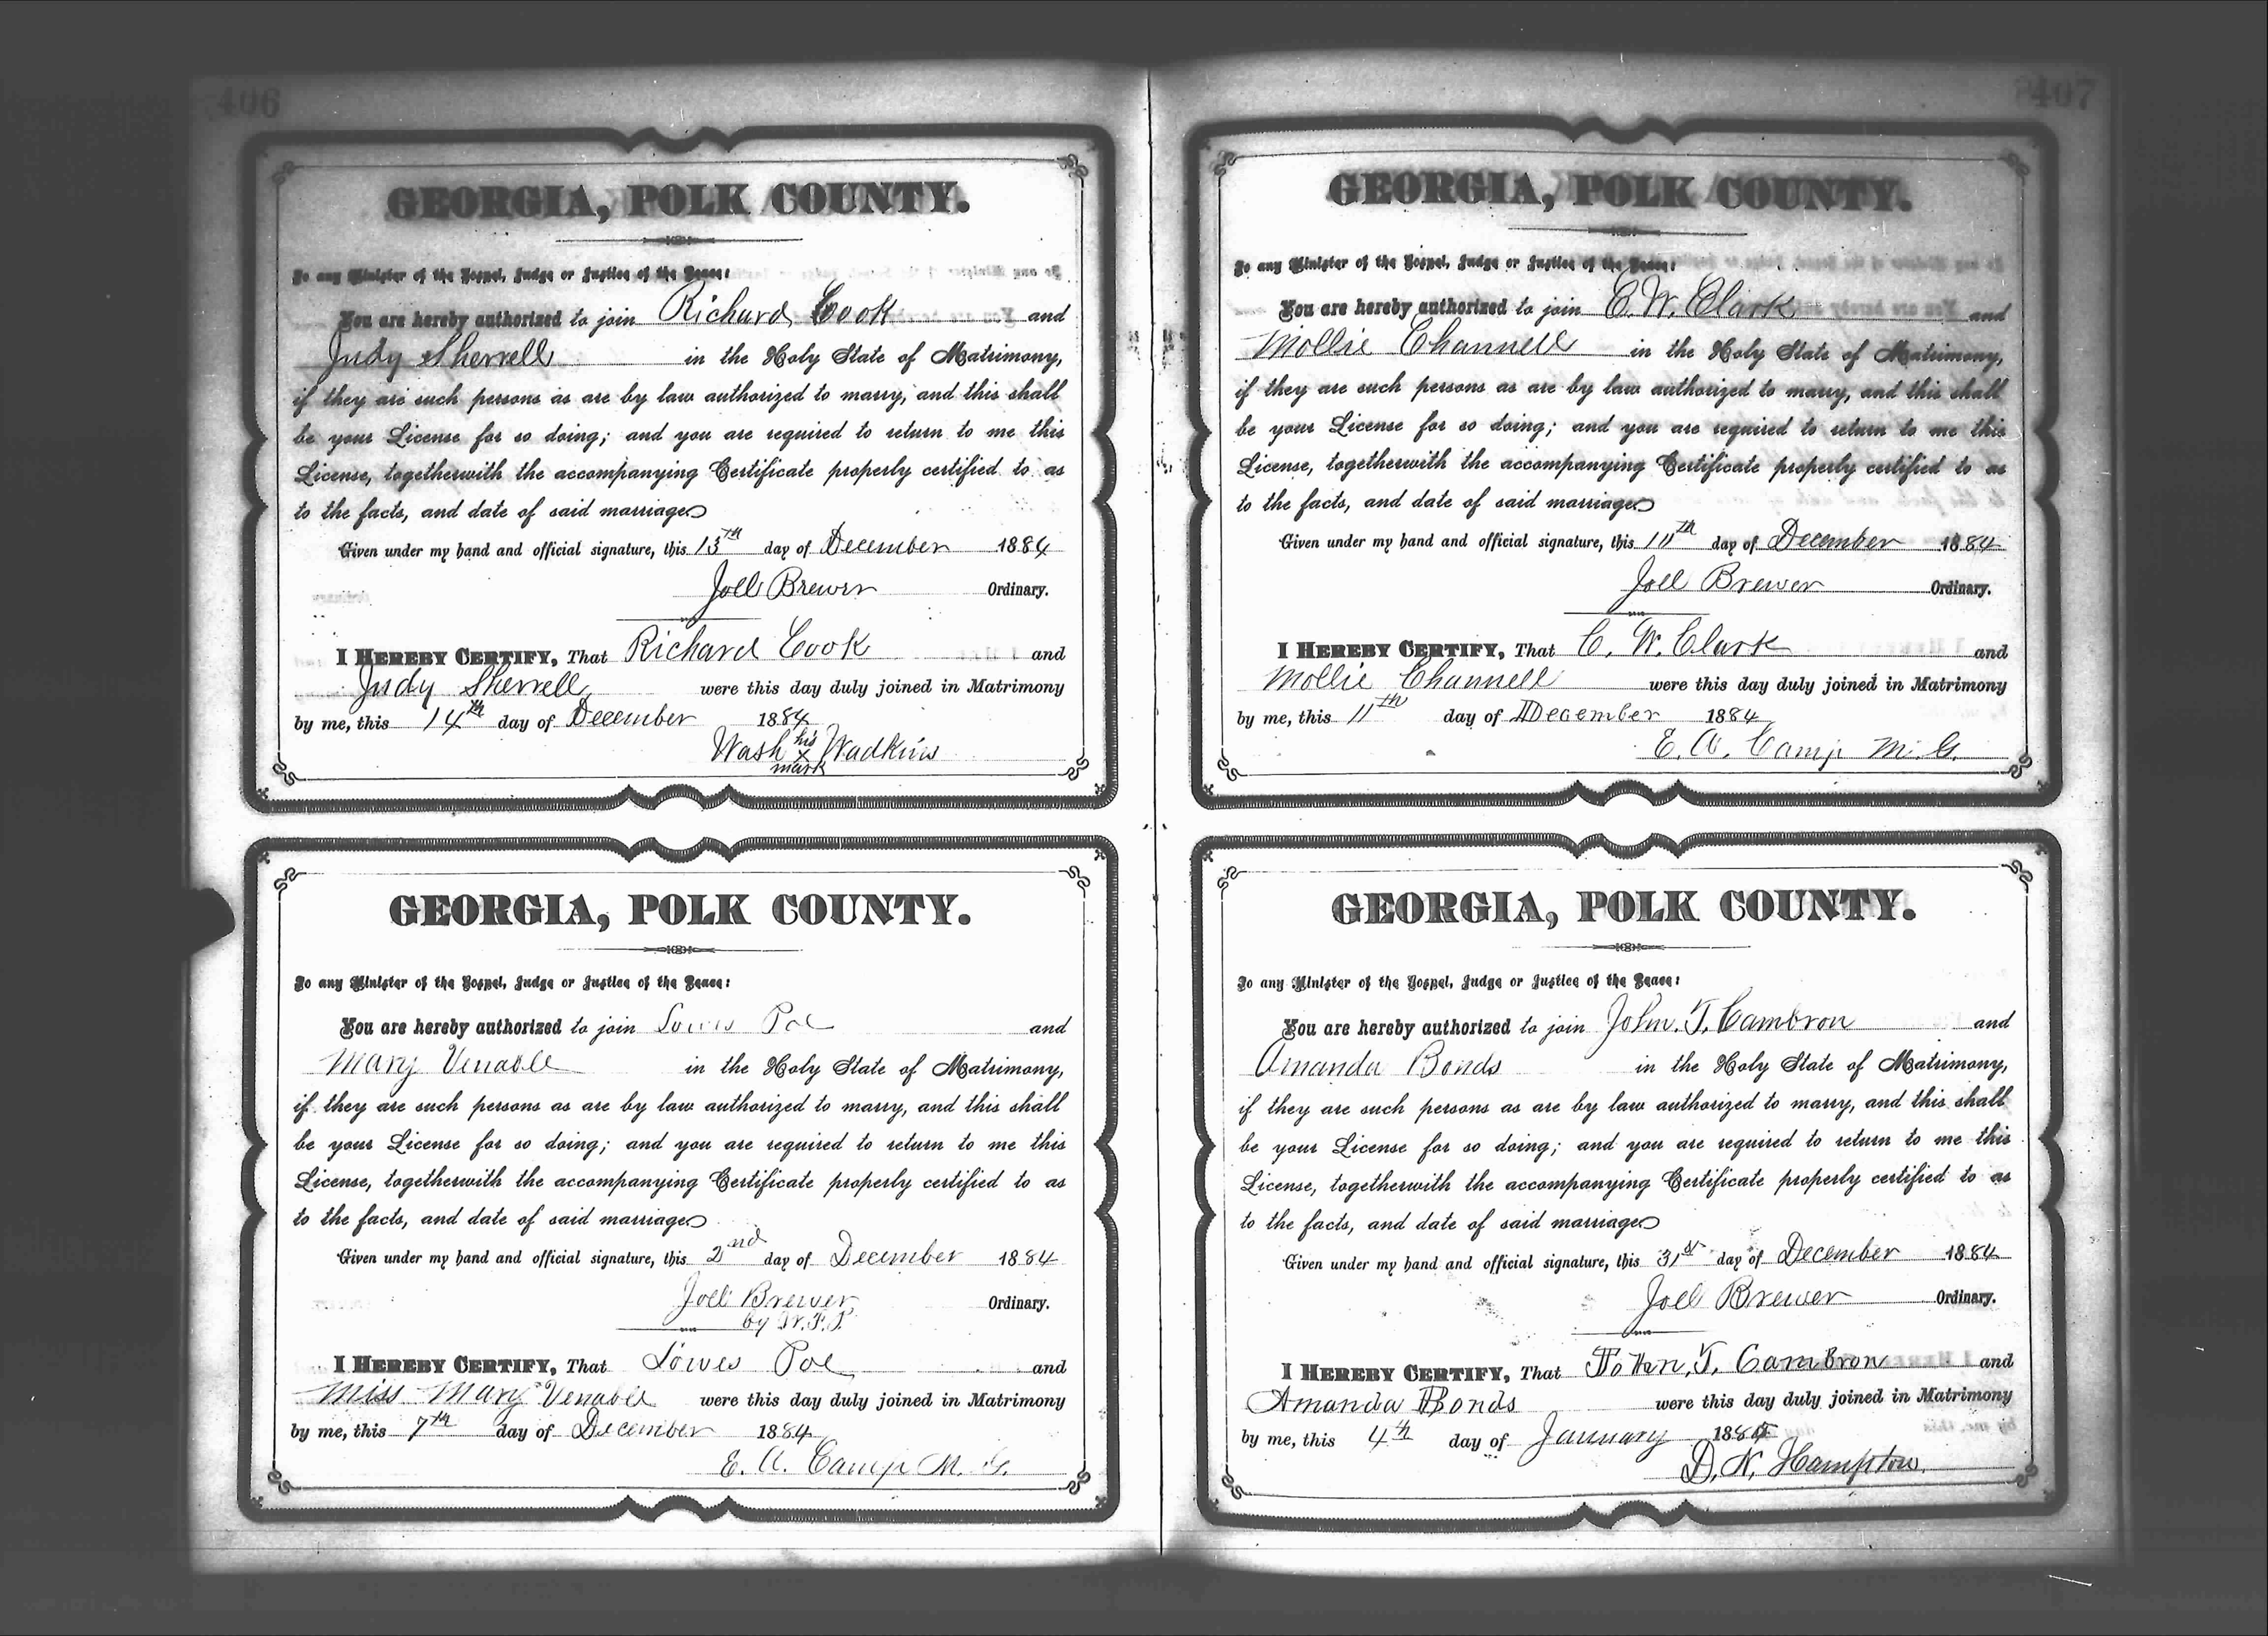 406
GEORGIA, POLK COUNTY.
To any Minister of the Gospel, Judge or Justice of the Peace:
You are hereby authorized to join Richard Cook and
Judy Sherrell in the Holy State of Matrimony,
if they are such persons as are by law authorized to marry, and this shall
be your License for so doing; and you are required to return to me this
License, togetherwith the accompanying Certificate properly certified to as
to the facts, and date of said marriage
Given under my hand and official signature, this 13th day of December 1884
Joel Brewer Ordinary.
I HEREBY CERTIFY, That Richard Cook and
Judy Sherrell were this day duly joined in Matrimony
by me, this 14th day of December 1884
Wash his x mark Wadkins
GEORGIA, POLK COUNTY.
To any Minister of the Gospel, Judge or Justice of the Peace:
You are hereby authorized to join Lowes Poe and
Mary Venable in the Holy State of Matrimony,
if they are such persons as are by law authorized to marry, and this shall
be your License for so doing; and you are required to return to me this
License, togetherwith the accompanying Certificate properly certified to as
to the facts, and date of said marriage
Given under my hand and official signature, this 2nd day of December 1884
Joel Brewer Ordinary.
by W. F. T.
I HEREBY CERTIFY, That Lowes Poe and
Miss Mary Venable were this day duly joined in Matrimony
by me, this 7th day of December 1884
E. A. Camp M. G.
407
GEORGIA, POLK COUNTY.
To any Minister of the Gospel, Judge or Justice of the Peace:
You are hereby authorized to join C. W. Clark and
Mollie Channell in the Holy State of Matrimony,
if they are such persons as are by law authorized to marry, and this shall
be your License for so doing; and you are required to return to me this
License, togetherwith the accompanying Certificate properly certified to as
to the facts, and date of said marriage
Given under my hand and official signature, this 10th day of December 1884
Joel Brewer Ordinary.
I HEREBY CERTIFY, That C. W. Clark and
Mollie Channell were this day duly joined in Matrimony
by me, this 11th day of December 1884
E. A. Camp M. G.
GEORGIA, POLK COUNTY.
To any Minister of the Gospel, Judge or Justice of the Peace:
You are hereby authorized to join John. T. Cambron and
Amanda Bonds in the Holy State of Matrimony,
if they are such persons as are by law authorized to marry, and this shall
be your License for so doing; and you are required to return to me this
License, togetherwith the accompanying Certificate properly certified to as
to the facts, and date of said marriage
Given under my hand and official signature, this 31st day of December 1884
Joel Brewer Ordinary.
I HEREBY CERTIFY, That John, T. Cambron and
Amanda Bonds were this day duly joined in Matrimony
by me, this 4th day of January 1885
D. N. Hampton.